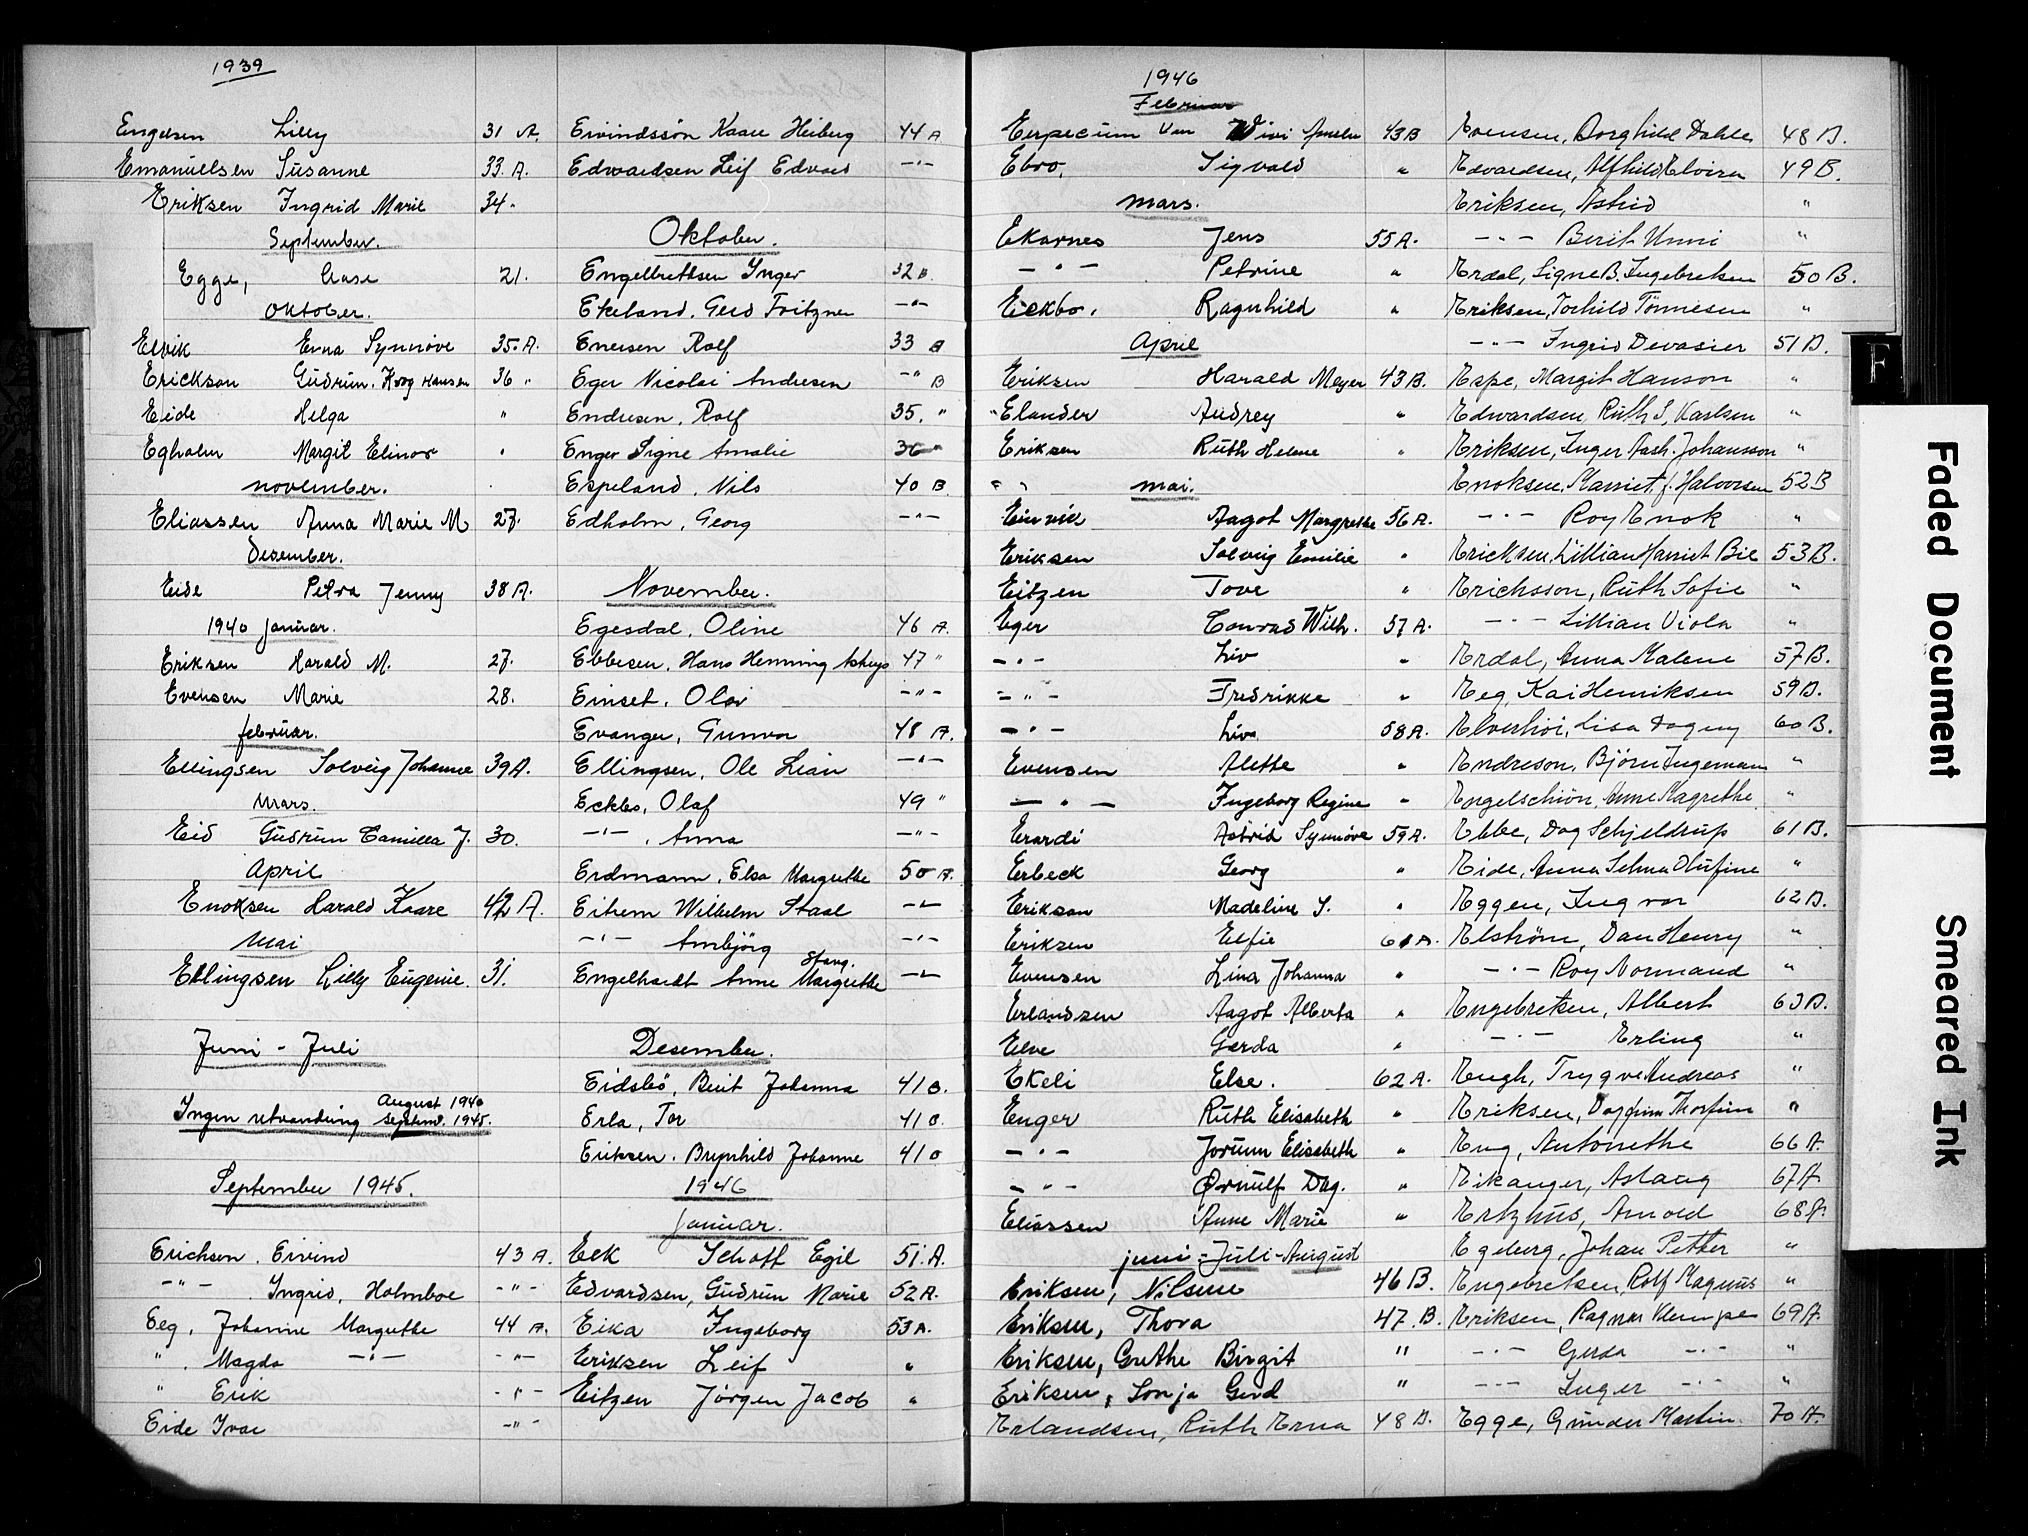 1939
Engelsen Lilly 31 A.
Emanuelsen Susanne 33. A.
Eriksen Ingrid Marie 34. "
September.
Egge, Aase 21.
Oktober.
Elvik Erna Synnöve 35. A.
Erickson Gudrun. Krog Hansen 36 "
Eide Helga "
Egholm Margit Elinor "
november.
Eliassen Anna Marie M 27.
Desember.
Eide Petra Jenny 38 A.
1940 januar.
Eriksen Harald M. 27.
Evensen Marie 28.
februar.
Ellingsen Solveig Johanne 39 A.
Mars.
Eid Gudrun Camilla J. 30.
April
Enoksen Harald Kaare 42 A.
Mai
Ellingsen Lilly Eugenie. 31.
Juni - Juli
August 1940
Ingen utvandring septmb. 1945.
September 1945.
Erichsen. Eivind 43 A.
-"- Ingrid, Holmboe -"-
Eeg, Johanne Margrethe 44 A.
" . Magda -"- -"-
" Erik -"-
Eide Ivar -"-
Eivindssön Kaare Heiberg 44 A
Edwardsen Leif Edvard -"-
Oktober.
Engelbrethsen Inger 32 B.
Ekeland. Gerd Fritzner -"-
Enersen Rolf 33 B
Eger Nicolai Andresen -" B
Endresen, Rolf 35. "
Enger Signe Amalie 36 "
Espeland, Nils 40 B
Edholm, Georg -"-
November.
Egesdal, Oline 46 A.
Ebbesen, Hans Henning 47 "
Einset. Olav -"-
Evanger, Gunvor 48 A.
Ellingsen, Ole Lian -"-
Eckbo, Olaf 49 "
-"- , Anna -"-
Erdmann, Elsa Margrethe 50 A.
Eitrem Wilhelm Staal -"-
-"- Arnbjörg -"-
Stang.
Engelhardt Anne Margrethe -"-
Desember.
Eidsbö, Berit Johanna 41 B.
Erla, Tor 41 B
Eriksen. Brynhild Johanne 41 B
1946
januar.
Eek Schott Egil 51. A.
Edvardsen, Gudrun Marie 52 A.
Eika Ingeborg 53 A.
Eriksen Leif "
Eitzen Jörgen Jacob "
1946
Februar
Eerpecum van Vivi Amalie 43 B
Ebro, Sigvald "
mars.
Ekornes Jens 55 A.
-"- Petrine "
Eickbo, Ragnhild "
April
Eriksen Harald Meyer 43 B.
Elander Audrey "
Eriksen Ruth Helene "
mai.
Einvik Aagot Margrethe 56 A.
Eriksen Solveig Emilie "
Eitzen Tove "
Eger Conrad Wilh. 57 A.
-"- Liv "
-"- Fredrikke "
-"- Liv 58 A.
Evensen Alette "
-"- Ingeborg Regine "
Erardi Astrid Synnöve 59 A.
Erbeck Georg "
Erikson Madeline S. "
Eriksen Elfie 61 A.
Evensen Lina Johanna "
Erlandsen Aagot Alberta "
Elve Gerda "
Ekeli Else. 62 A.
Enger Ruth Elisabeth "
-"- Jorunn Elisabeth "
-"- Ørnulf Dag. "
Eliassen Anne Marie "
juni - Juli - August
Eriksen, Nilsine 46 B.
Eriksen, Thora 47. B.
Eriksen, Grethe Birgit "
Eriksen, Sonja Gerd "
Erlandsen, Ruth Erna 48 B.
Evensen, Borghild Dahle 48 B.
Edvardsen, Alfhild Elvira 49 B.
Eriksen, Astrid "
-"- Berit Unni "
Erdal, Signe B. Ingebretsen 50 B.
Eriksen, Torhild Tönnesen "
-"- Ingrid Devasier 51 B.
Espe, Margit Hanson "
Edwardsen, Ruth S. Karlsen "
Eriksen, Inger Aash. Johansson "
Enoksen, Harriet f. Halvorsen 52 B
-"- Roy Enok "
Ericksen, Lillian Harriet Bie 53 B.
Erichsson, Ruth Sofie "
-"- Lillian Viola "
Erdal, Anna Malene 57 B.
Eeg, Kai Henriksen 59 B.
Elverhöi, Lisa Dagny 60 B.
Endreson, Björn Ingemann "
Engelschiön, Anne Magrethe "
Ebbe, Dag Schjeldrup 61 B.
Eide, Anna Selma Olufine "
Eggen, Ingvar 62 B.
Elström, Dan Henry "
-"- Roy Normand "
Engebretsen, Albert 63 B.
-"- Erling "
Eugh, Trygve Andreas "
Eriksen, Dagfinn Thorfinn "
Eng, Antonethe 66 A.
Eikanger, Aslaug 67 A
Ertzhus, Arnold 68 A.
Egeberg, Johan Petter "
Engebretsen, Rolf Magnus "
Eriksen, Ragnar Klempe 69 A.
-"- Gerda -"- "
-"- Inger -"- "
Egge, Gunder Martin. 70 A.
F
Faded Document
Smeared Ink